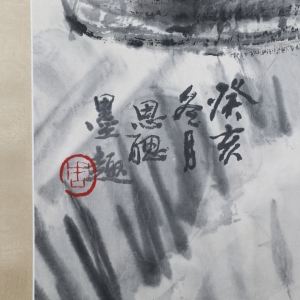 癸亥
冬月
恩聰
墨趣